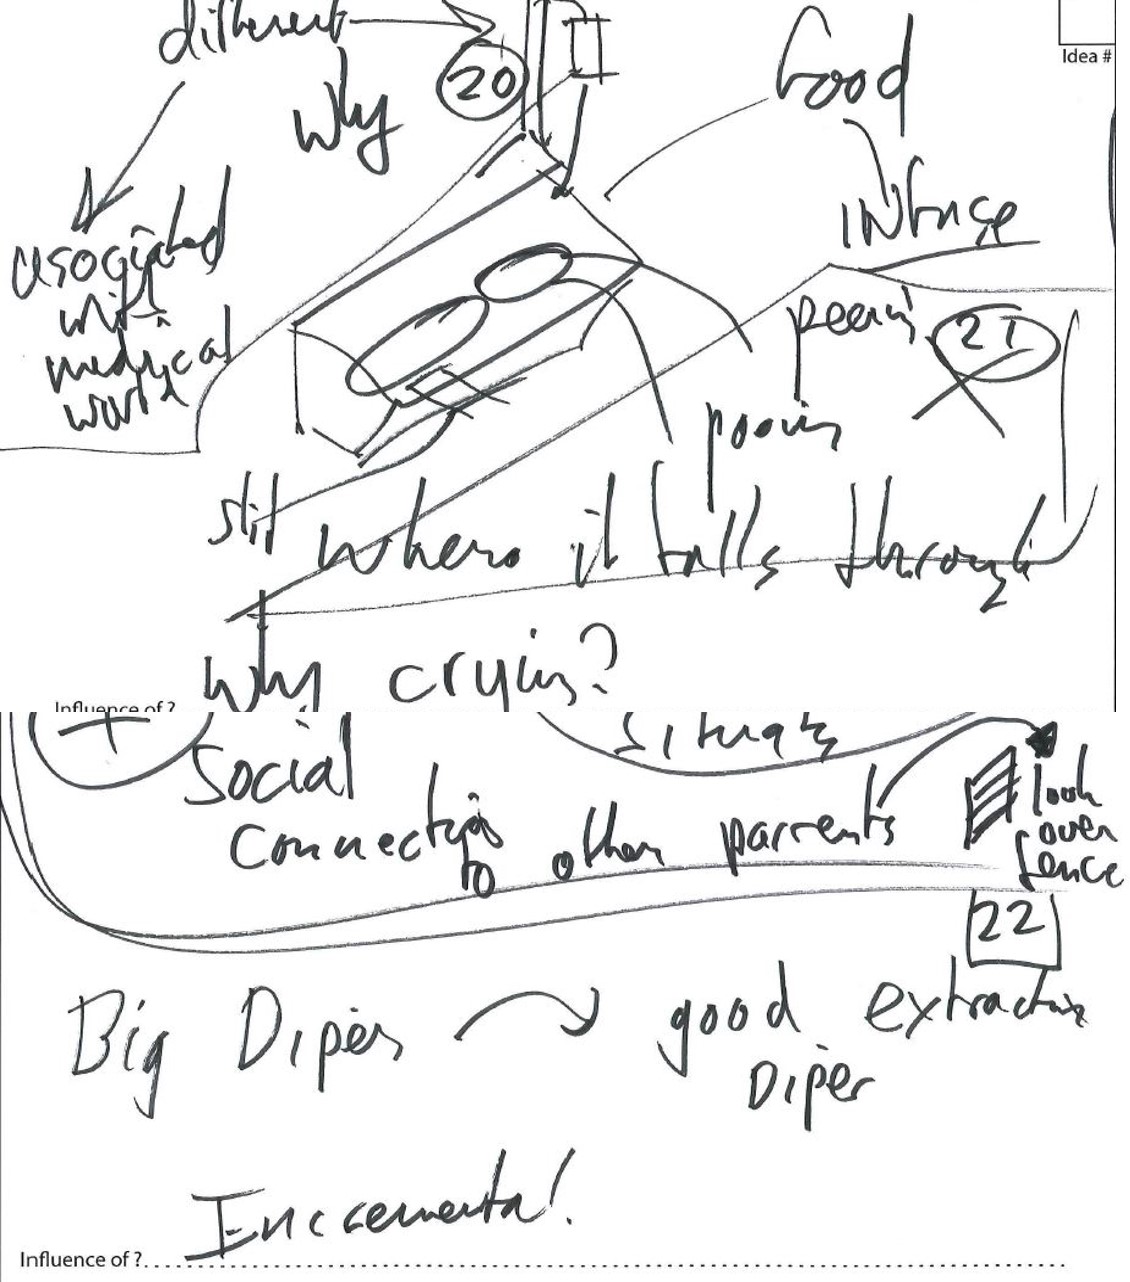 different
20
Why
Food
Idea #
INtnse
asogiated
with
medycal
world
peein
21
pooin
slit
where it falls through
Why cryin?
Influence of ?
+
Social
situats
connection
to other parrents
look
over
fence
22
Big Dipers
good extraction
Diper
Inccemental
Influence of ?